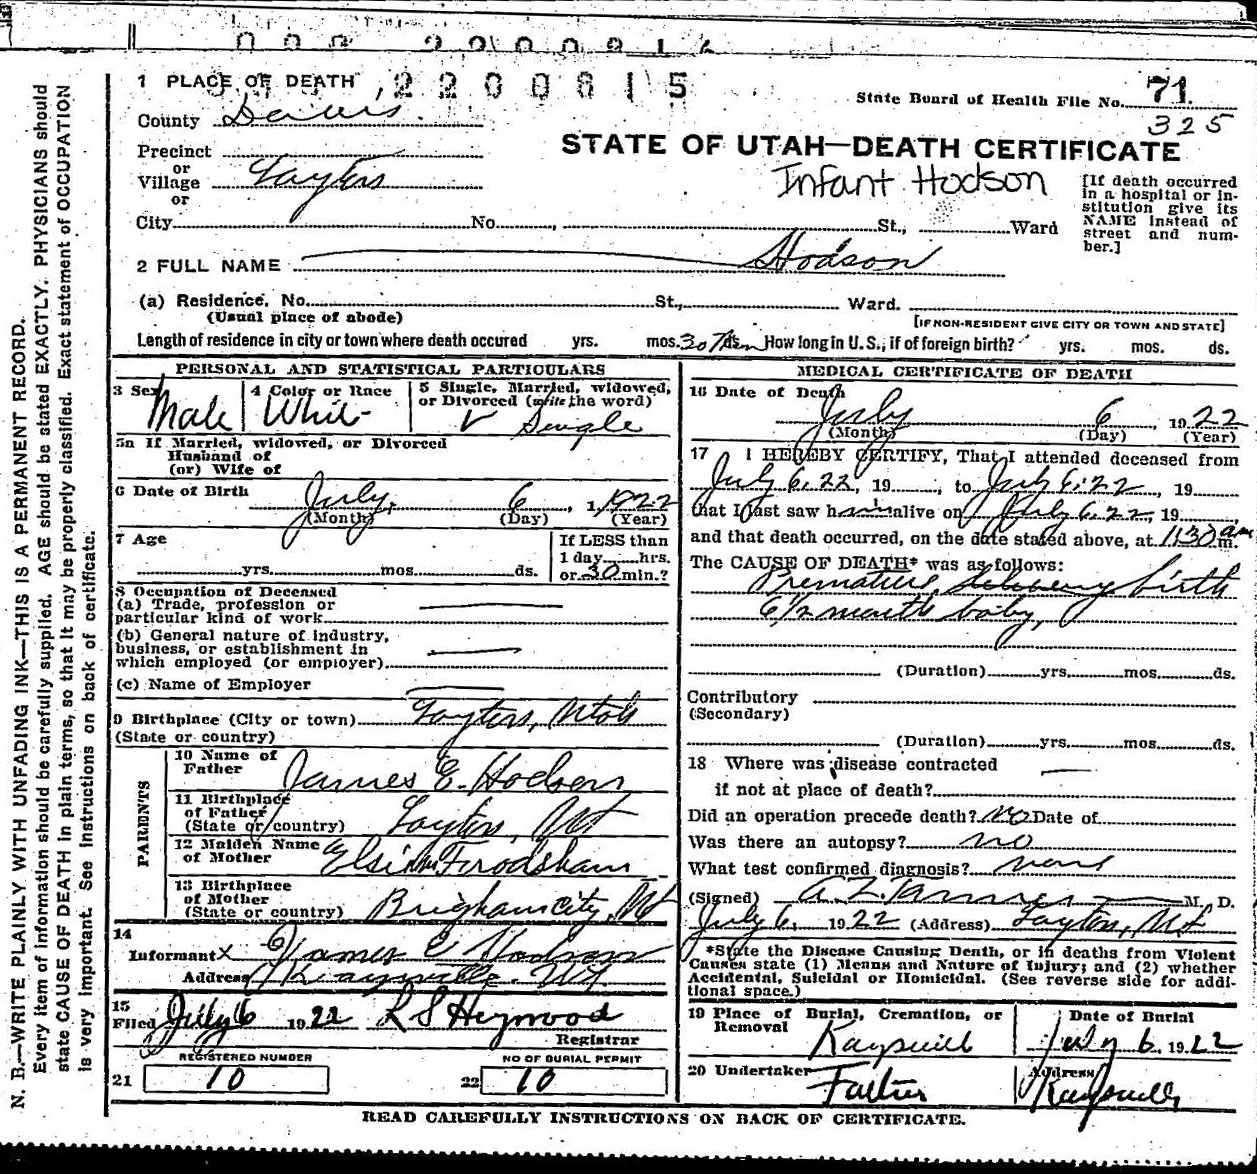 2200815
1 PLACE OF DEATH
State Board of Health File No. 71
325
County Davis
STATE OF UTAH—DEATH CERTIFICATE
Precinct
or
Village Layton
or
Infant Hodson
[If death occurred
in a hospital or in-
stitution give its
NAME instead of
street and num-
ber.]
City No. St., Ward
2 FULL NAME Hodson
(a) Residence, No. St., Ward.
(Usual place of abode)
[IF NON-RESIDENT GIVE CITY OR TOWN AND STATE]
Length of residence in city or town where death occured yrs. mos. 30 Min ds. How long in U. S., if of foreign birth? yrs. mos. ds.
PERSONAL AND STATISTICAL PARTICULARS
3 Sex Male
4 Color or Race White
5 Single, Married, widowed,
or Divorced (write the word)
Single
5a If Married, widowed, or Divorced
Husband of
(or) Wife of
6 Date of Birth July 6, 1922
(Month) (Day) (Year)
7 Age
yrs. mos. ds.
If LESS than
1 day hrs.
or 30 min.?
8 Occupation of Deceased
(a) Trade, profession or
particular kind of work
(b) General nature of industry,
business, or establishment in
which employed (or employer)
(c) Name of Employer
9 Birthplace (City or town) Layton, Utah
(State or country)
PARENTS
10 Name of
Father James E. Hodson
11 Birthplace
of Father
(State or country) Layton, Ut
12 Maiden Name
of Mother Elsie Frodsham
13 Birthplace
of Mother
(State or country) Brigham City, Ut
14
Informant X James E Hodson
Address Kaysville. Ut.
15
Filed July 6 1922 L S Heywood
Registrar
REGISTERED NUMBER
NO OF BURIAL PERMIT
21 10
22 10
MEDICAL CERTIFICATE OF DEATH
16 Date of Death
July 6, 1922
(Month) (Day) (Year)
17 I HEREBY CERTIFY, That I attended deceased from
July 6, 22, 19, to July 6, 22, 19
that I last saw him alive on July 6, 22, 19
and that death occurred, on the date stated above, at 1130 a m.
The CAUSE OF DEATH* was as follows:
Premature delivery birth
6 1/2 month baby,
(Duration) yrs. mos. ds.
Contributory
(Secondary)
(Duration) yrs. mos. ds.
18 Where was disease contracted
if not at place of death?
Did an operation precede death? No Date of
Was there an autopsy? no
What test confirmed diagnosis? none
(Signed) A. Z. Tanner M. D.
July 6, 1922 (Address) Layton, Ut
*State the Disease Causing Death, or in deaths from Violent
Causes state (1) Means and Nature of Injury; and (2) whether
Accidental, Suicidal or Homicidal. (See reverse side for addi-
tional space.)
19 Place of Burial, Cremation, or
Removal Kaysvill
Date of Burial
July 6, 1922
20 Undertaker
Father
Address
Kaysville
READ CAREFULLY INSTRUCTIONS ON BACK OF CERTIFICATE.
N. B.—WRITE PLAINLY WITH UNFADING INK—THIS IS A PERMANENT RECORD.
Every item of information should be carefully supplied. AGE should be stated EXACTLY. PHYSICIANS should
state CAUSE OF DEATH in plain terms, so that it may be properly classified. Exact statement of OCCUPATION
is very important. See instructions on back of certificate.